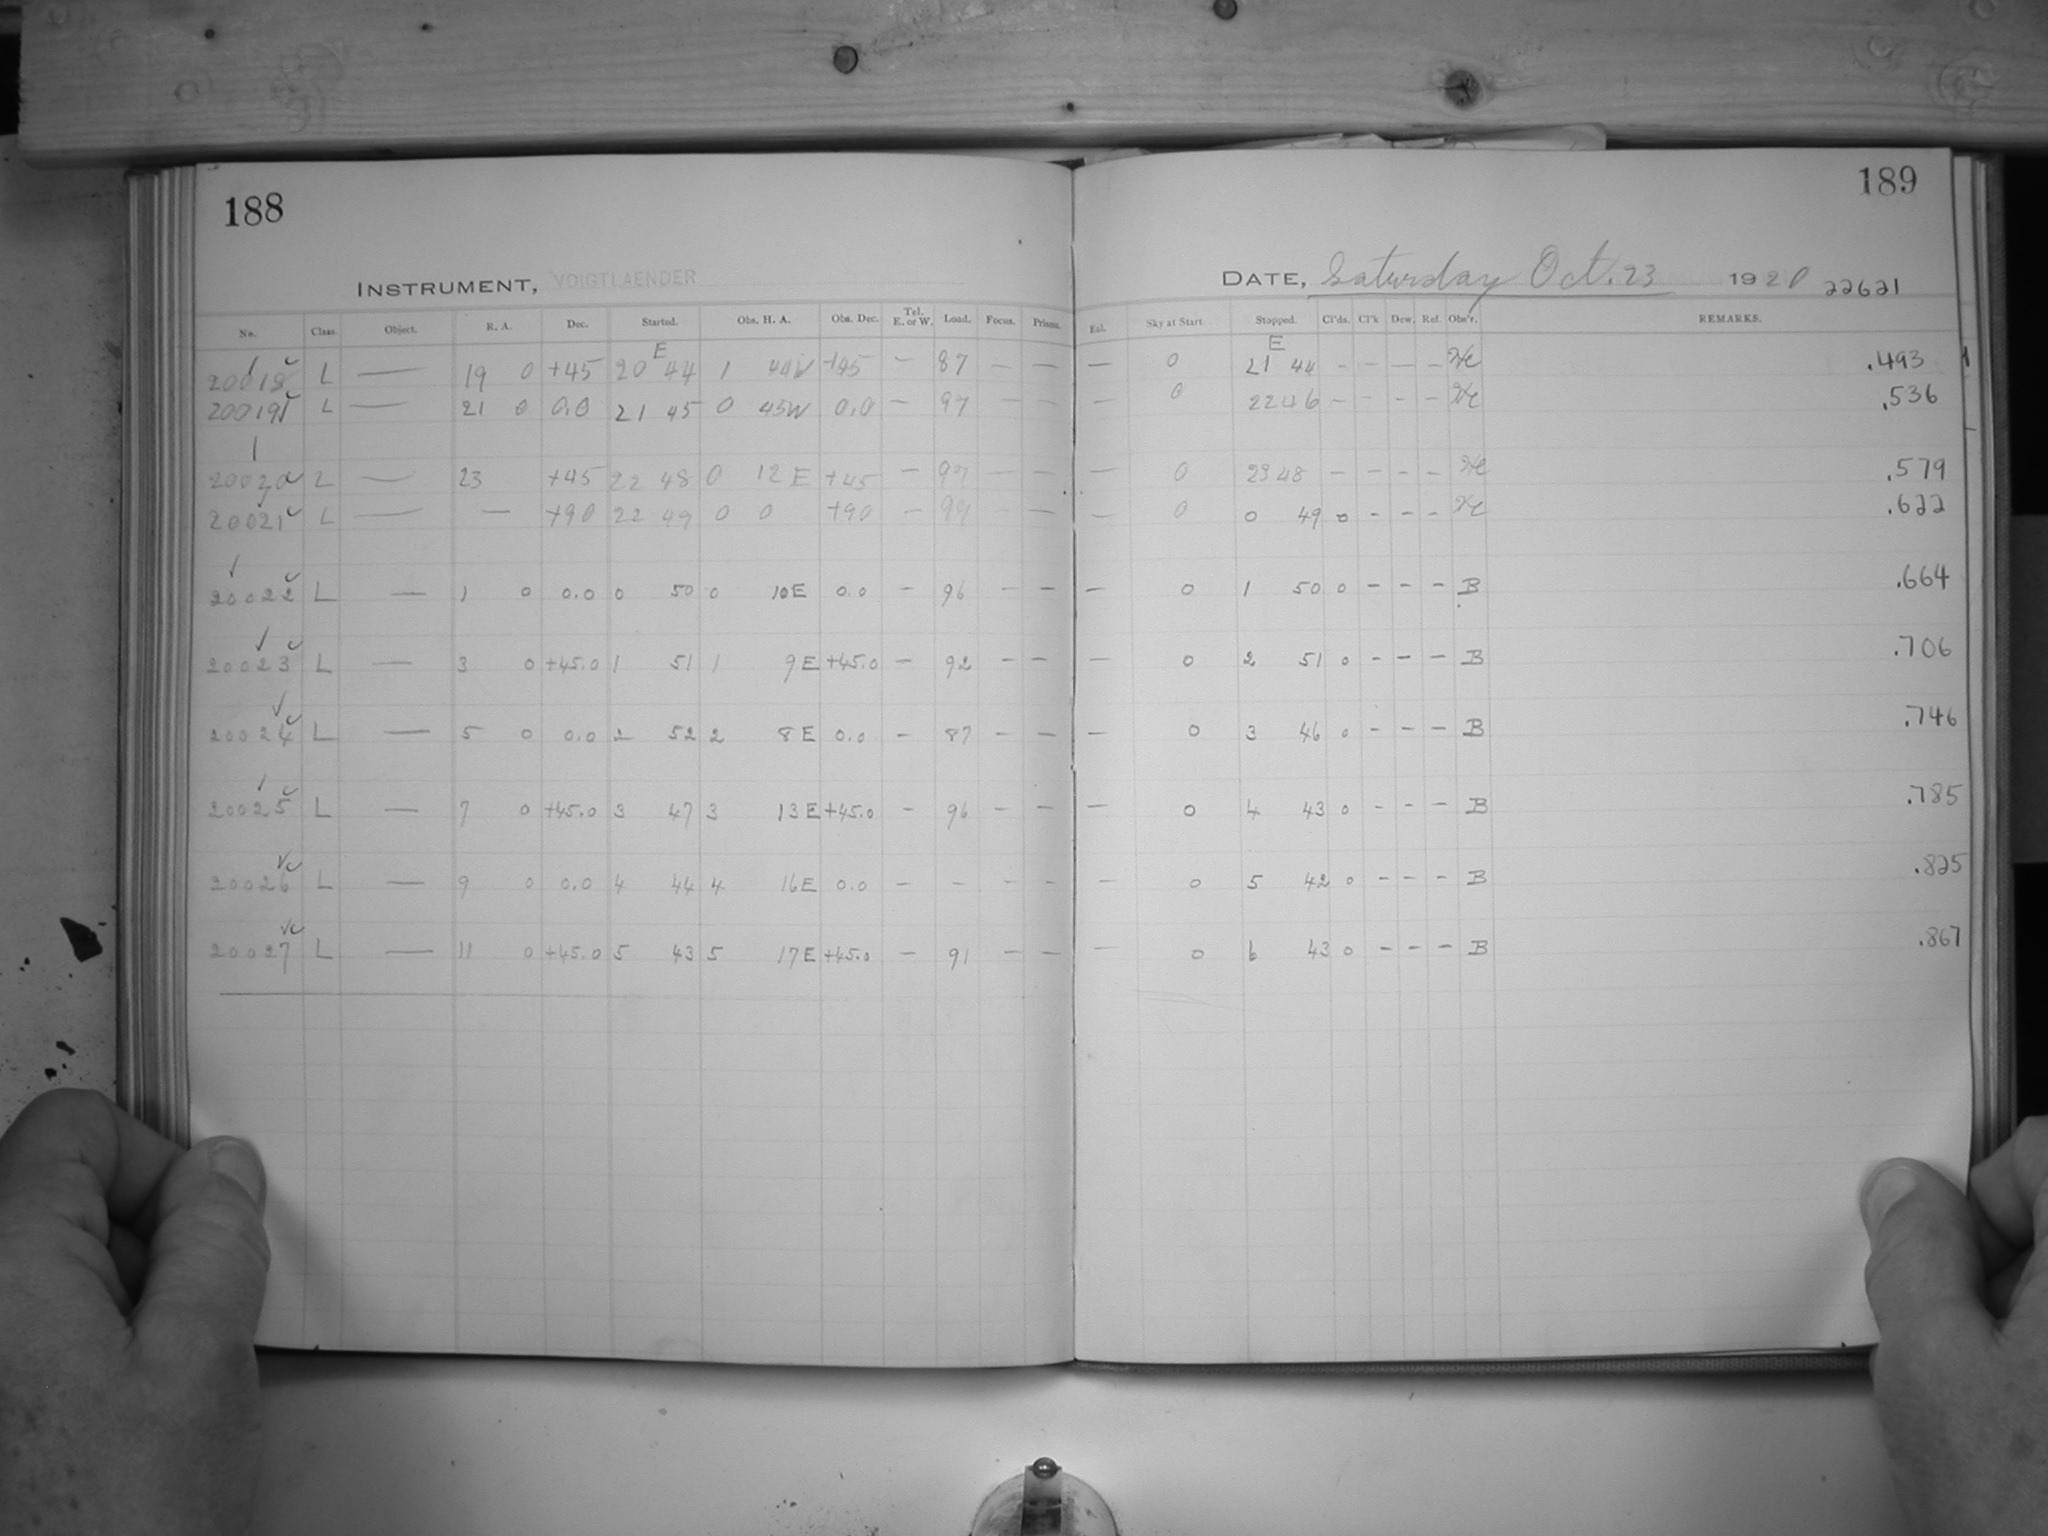 188
INSTRUMENT, VOIGTLAENDER
No. Class. Object. R. A. Dec. Started. Obs. H. A. Obs. Dec. Tel. E. or W. Load. Focus. Prisms.
20018 L — 19 0 +45 20 E 44 1 44W +45 — 87 — —
20019 L — 21 0 0.0 21 45 0 45W 0.0 — 97 — —
20020 L — 23 +45 22 48 0 12 E +45 — 97 — —
20021 L — — +90 22 49 0 0 +90 — 99 — —
20022 L — 1 0 0.0 0 50 0 10E 0.0 — 96 — —
20023 L — 3 0 +45.0 1 51 1 9E +45.0 — 92 — —
20024 L — 5 0 0.0 2 52 2 8E 0.0 — 87 — —
20025 L — 7 0 +45.0 3 47 3 13E +45.0 — 96 — —
20026 L — 9 0 0.0 4 44 4 16E 0.0 — — — —
20027 L — 11 0 +45.0 5 43 5 17E +45.0 — 91 — —
189
DATE, Saturday Oct. 23 1920 22621
Eal. Sky at Start. Stopped. Cl'ds. Cl'k Dew. Ref. Obs'r. REMARKS.
— 0 21 E 44 - - - - .493
— 0 22 46 - - - - .536
— 0 23 48 - - - - .579
— 0 0 49 0 - - - .622
— 0 1 50 0 - - - B .664
— 0 2 51 0 - - - B .706
— 0 3 46 0 - - - B .746
— 0 4 43 0 - - - B .785
— 0 5 42 0 - - - B .825
— 0 6 43 0 - - - B .867